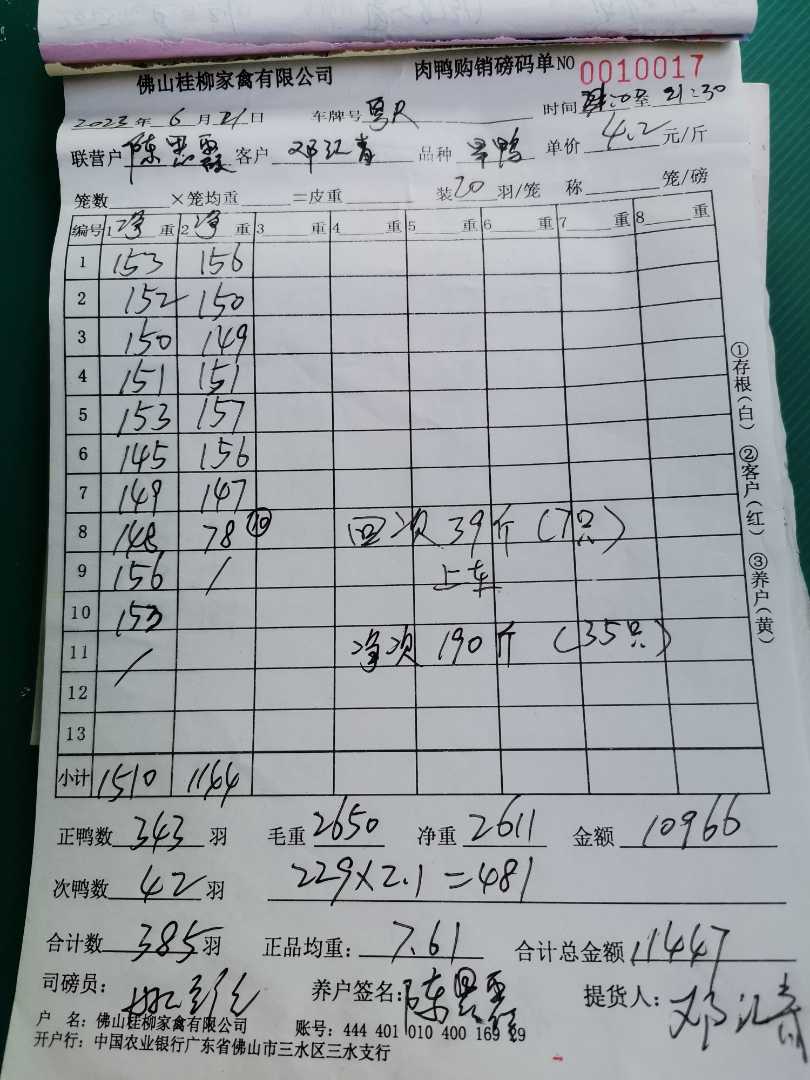 佛山桂柳家禽有限公司 肉鸭购销磅码单NO 0010017
2023年6月21日 车牌号 时间 至 21:30
联营户 陈 客户 邓江青 品种 鸭 单价 4.2 元/斤
笼数 ×笼均重 =皮重 装 20 羽/笼 称 笼/磅
编号 1 净 重 2 净 重 3 重 4 重 5 重 6 重 7 重 8 重
1 153 156
2 152 150
3 150 149
4 151 151
5 153 157
6 145 156
7 149 147
8 148 78 ⑩ 回次 39斤(7只)
9 156 / 上车
10 153
11 / 净次 190斤(35只)
12
13
小计 1510 1144
正鸭数 343 羽 毛重 2650 净重 2611 金额 10966
次鸭数 42 羽 229×2.1=481
合计数 385 羽 正品均重: 7.61 合计总金额 11447
司磅员: 养户签名: 陈 提货人: 邓江青
户 名: 佛山桂柳家禽有限公司 账号: 444 401 010 400 169 29
开户行: 中国农业银行广东省佛山市三水区三水支行
①存根(白) ②客户(红) ③养户(黄)